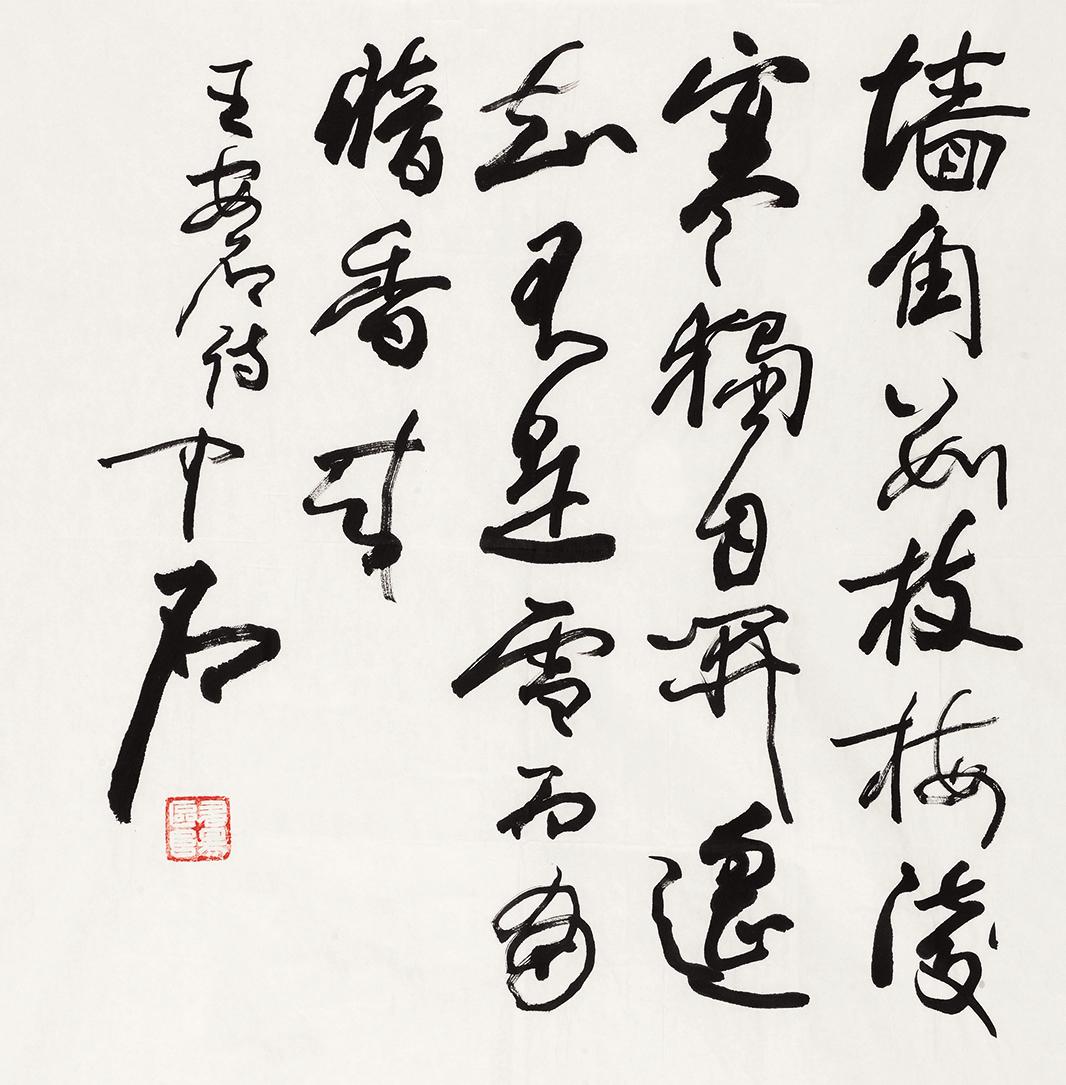 墙角數枝梅凌
寒獨自開遥
知不是雪为有
暗香来
王安石诗 中石